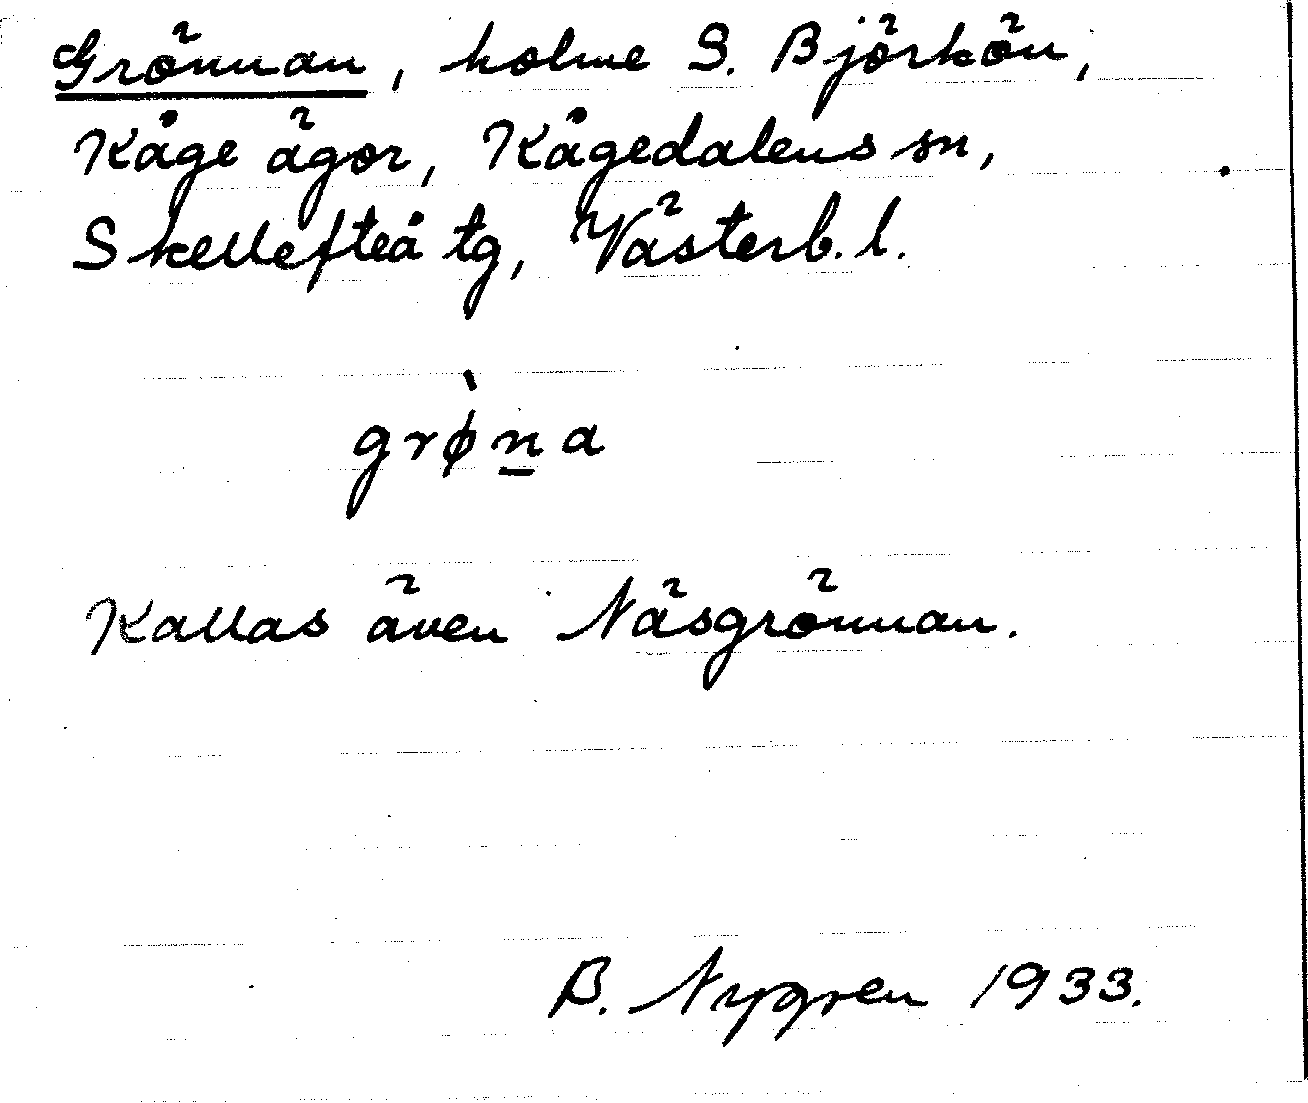 Grönnan, holme S. Björkön,
Kåge ägor, Kågedalens sn,
Skellefteå tg, Västerb. l.
grø̀n̲a
Kallas även Näsgrönnan.
B. Nygren 1933.